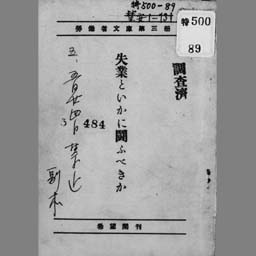 特500-89
特500
89
勞働者文庫第三冊
調査済
失業といかに鬪ふべきか
484
3
副本
希望閣刊